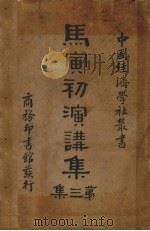 中國經濟學社叢書
馬寅初演講集
第三集
商務印書館發行